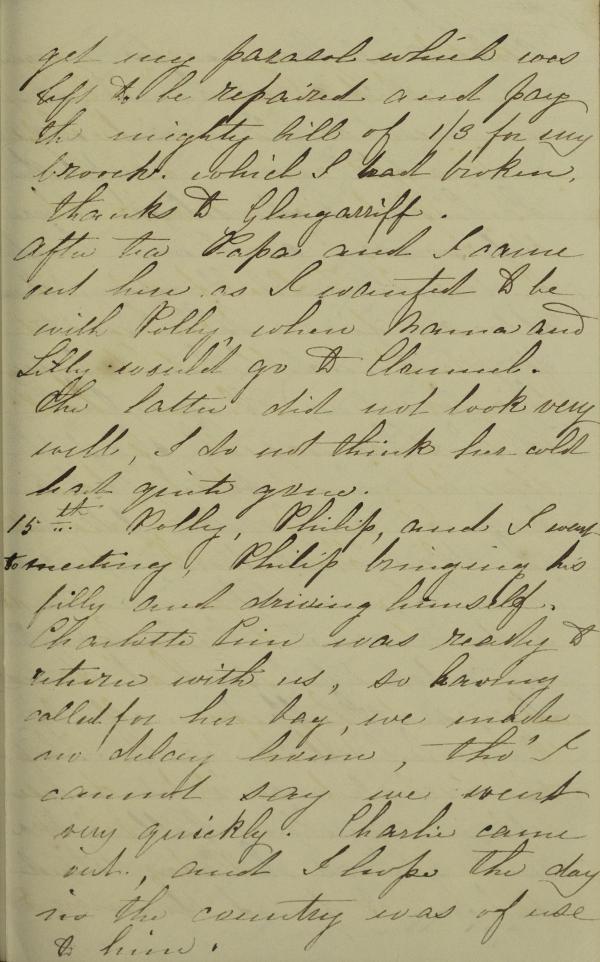 get my parasol which was
left to be repaired and pay
the mighty bill of 1/3 for my
brooch. which I had broken,
thanks to Glengarriff.
After tea Papa and I came
out here as I wanted to be
with Polly, when Mama and
Lilly would go to Clonmel.
The latter did not look very
well, I do not think her cold
is quite gone.
15th Polly, Philip, and I went
to meeting, Philip bringing his
filly and driving himself.
Charlotte Pim was ready to
return with us, so having
called for her bag, we made
no delay home, tho' I
cannot say we went
very quickly. Charlie came
out, and I hope the day
in the country was of use
to him.